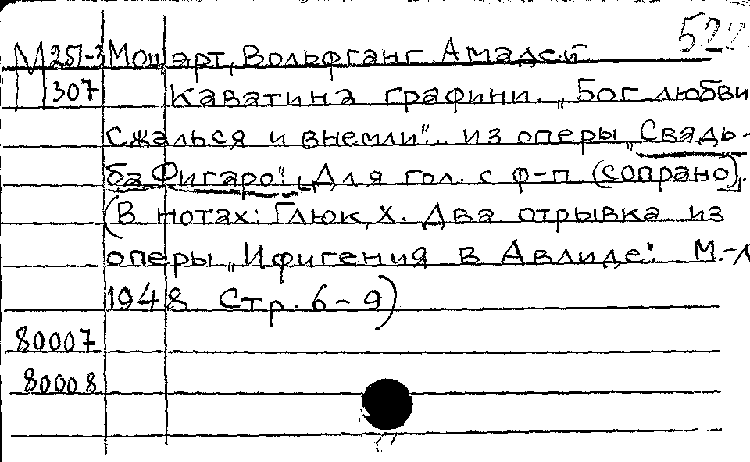 522
М 251-3 Моцарт, Вольфганг Амадей
307 Каватина графини. „Бог любви
сжалься и внемли“. из оперы „Свадь-
ба Фигаро“. Для гол. с ф-п (сопрано).
(В нотах: Глюк, Х. Два отрывка из
оперы „Ифигения в Авлиде“. М.-Л
1948 Стр. 6-9)
80007
80008